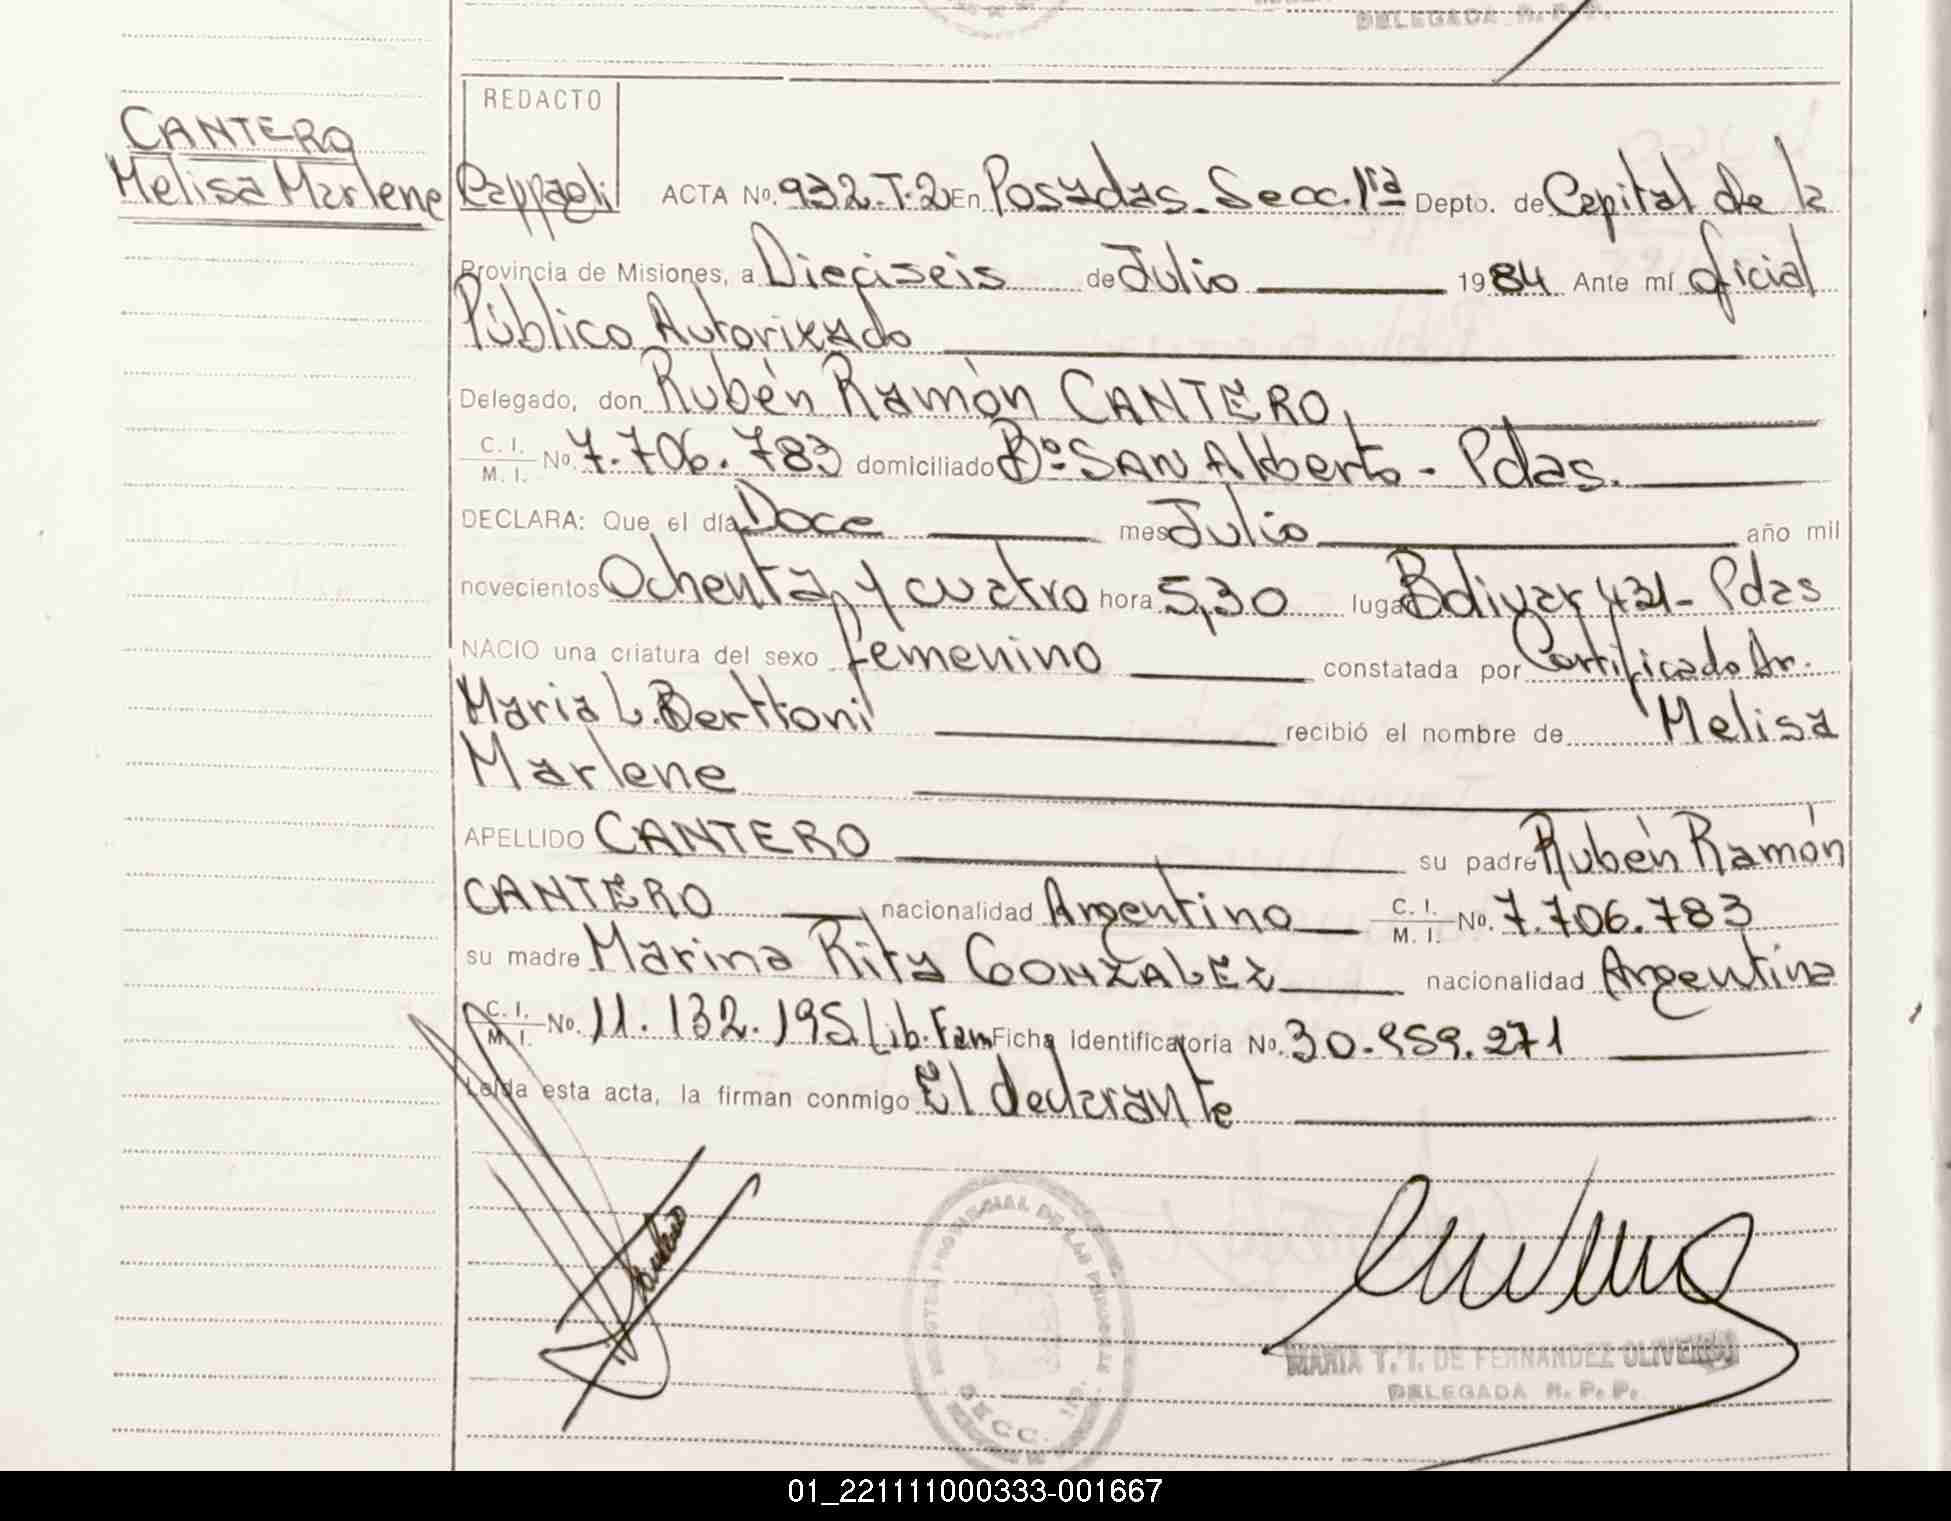 DELEGADA R. P. P.
CANTERO
Melisa Marlene
REDACTO
Rappagli ACTA No. 932-T-2 En Posadas-Secc. 1ra Depto. de Capital de la
Provincia de Misiones, a Dieciseis de Julio 1984 Ante mí Oficial
Público Autorizado
Delegado, don Rubén Ramón CANTERO,
C. I. / M. I. No. 7.706.783 domiciliado Bº SAN Alberto - Pdas.
DECLARA: Que el día Doce mes Julio año mil
novecientos Ochenta y cuatro hora 5,30 lugar Bolivar 431- Pdas
NACIO una criatura del sexo femenino constatada por Certificado Dr.
Maria L. Berttoni recibió el nombre de Melisa
Marlene
APELLIDO CANTERO su padre Rubén Ramón
CANTERO nacionalidad Argentino C. I. / M. I. No. 7.706.783
su madre Marina Rita GONZALEZ nacionalidad Argentina
C. I. / M. I. No. 11.132.195 Lib. Fam Ficha identificatoria No. 30.959.271
Leída esta acta, la firman conmigo El declarante
REGISTRO PROVINCIAL DE LAS PERSONAS
SECC. 1a.
MARIA T. I. DE FERNANDEZ OLIVERA
DELEGADA R. P. P.
01_221111000333-001667